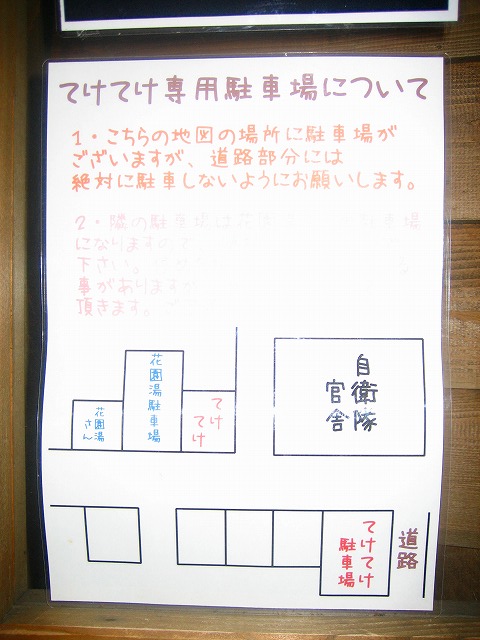 てけてけ専用駐車場について
1・こちらの地図の場所に駐車場が
ございますが、道路部分には
絶対に駐車しないようにお願いします。
2・隣の駐車場は花 駐車場
になりますの
下さい。
事があります
頂きます。
花園湯さん
花園湯駐車場
てけてけ
自衛隊
官舎
てけてけ
駐車場
道路